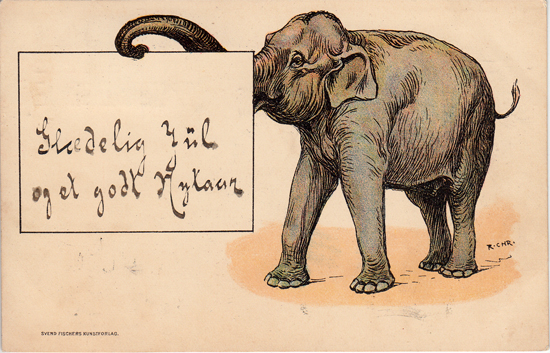 Glædelig Jül
og et godt Nytaar
R. CHR.
SVEND FISCHERS KUNSTFORLAG.